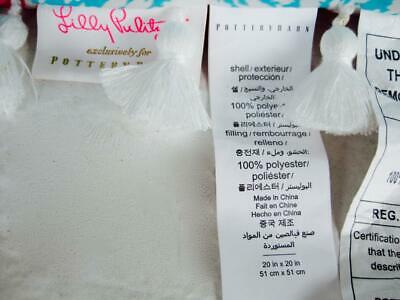 Lilly Pulitz
exclusively for
POTTERY BARN
POTTERYBARN
shell/exterieur/
protección/
الخارجي، والنسيج/ 쉘
الخارجي
100% polyester/
poliéster/
البوليستر/ 폴리에스터/
filling/rembourrage/
relleno/
الحشو، وملء/ 충전재/
100% polyester/
poliéster/
البوليستر/ 폴리에스터/
Made in China
Fait en Chine
Hecho en China
중국 제조
صنع في الصين من المواد
المستوردة
20 in x 20 in
51 cm x 51 cm
UND
TH
DEMO
100%
REG.
Certification
that the
descri